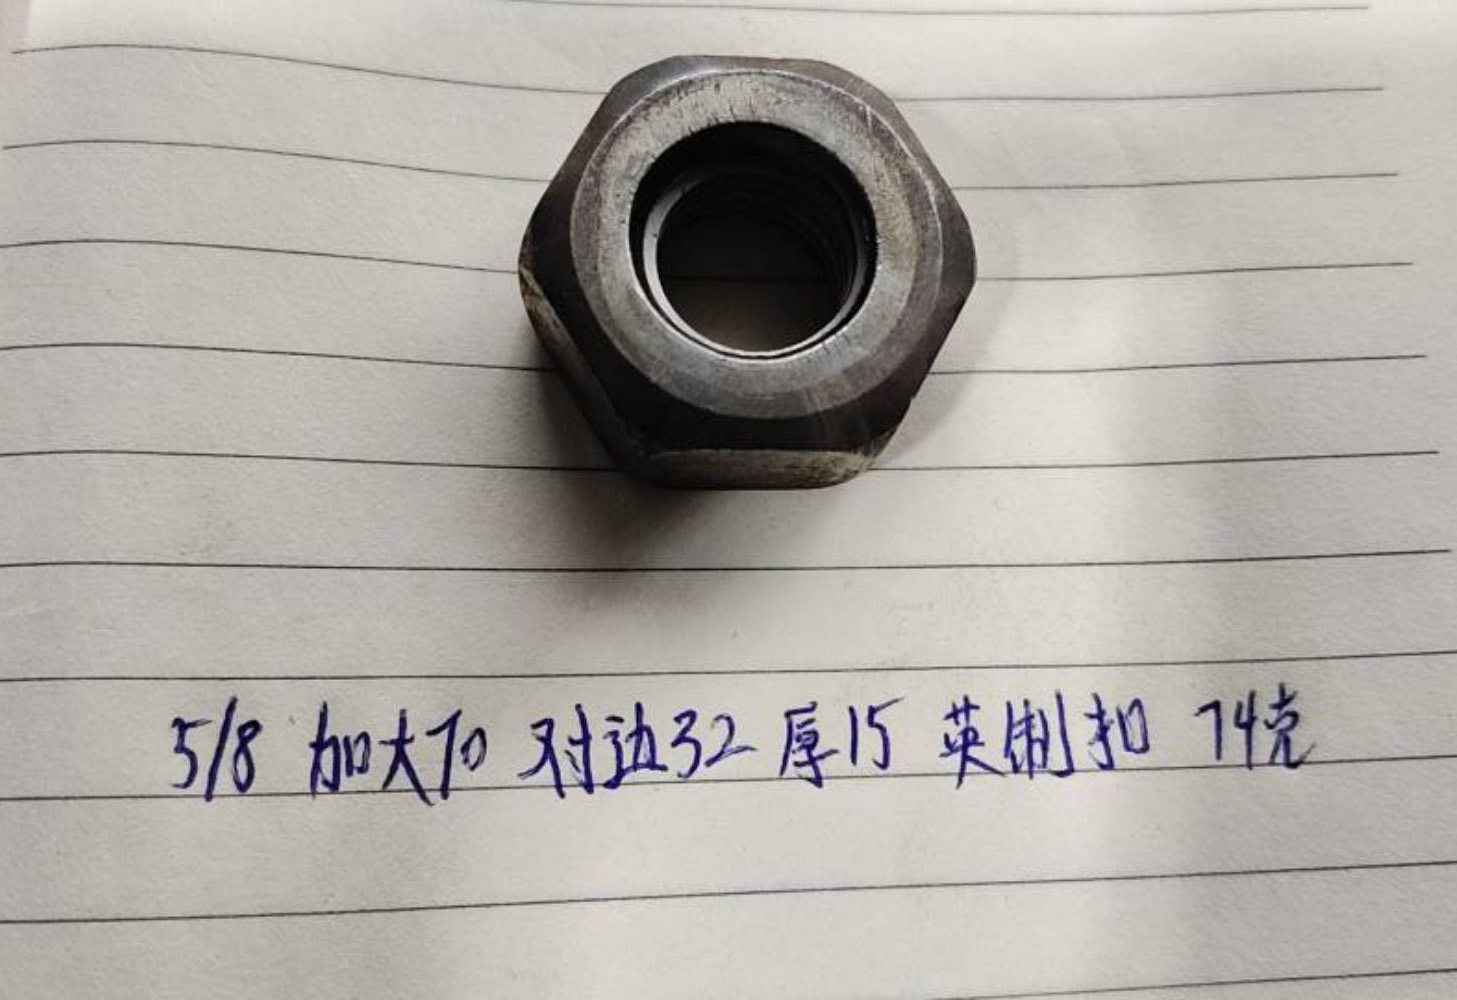 5/8 加大70 对边32 厚15 英制扣 74克